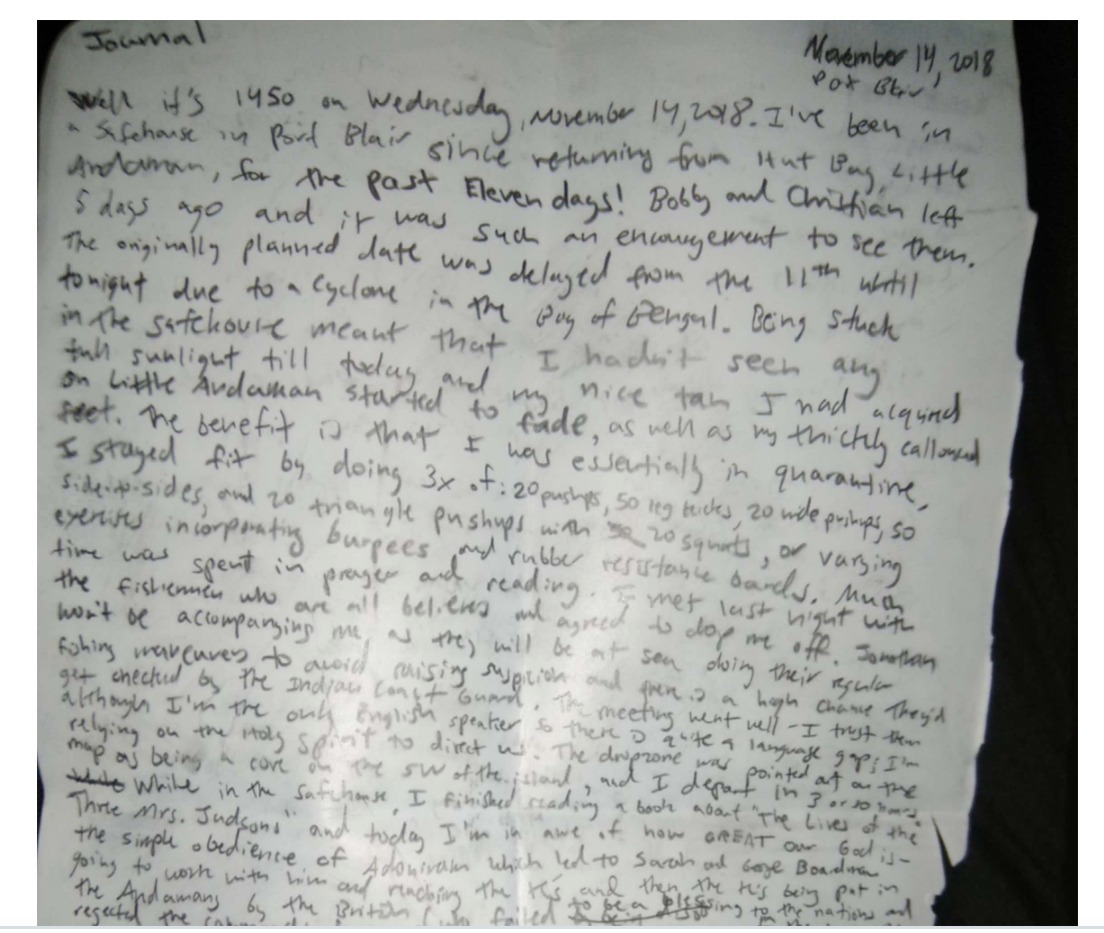 Journal
November 14, 2018
Port Blair
Well it's 1450 on Wednesday, November 14, 2018. I've been in
a Safehouse in Port Blair since returning from Hut Bay, Little
Andaman, for the past Eleven days! Bobby and Christian left
5 days ago and it was such an encouragement to see them.
The originally planned date was delayed from the 11th until
tonight due to a Cyclone in the Bay of Bengal. Being stuck
in the safehouse meant that I hadn't seen any
full sunlight till today and my nice tan I had acquired
on Little Andaman started to fade, as well as my thickly calloused
feet. The benefit is that I was essentially in quarantine,
I stayed fit by doing 3x of: 20 pushups, 50 leg kicks, 20 wide pushups, 50
side-to-sides, and 20 triangle pushups with 20 squats, or varying
exercises incorporating burpees and rubber resistance bands. Much
time was spent in prayer and reading. I met last night with
the fishermen who are all believers and agreed to drop me off. Jonathan
won't be accompanying me, as they will be at sea doing their regular
fishing maneuvers to avoid raising suspicion and there is a high chance They'd
get checked by the Indian Coast Guard. The meeting went well - I trust them
although I'm the only English speaker so there is quite a language gap; I'm
relying on the Holy Spirit to direct us. The dropzone was pointed out on the
map as being a cove on the SW of the island, and I depart in 3 or so hours.
While in the safehouse, I finished reading a book about "The Lives of the
Three Mrs. Judsons" and today I'm in awe of how GREAT our God is -
the simple obedience of Adoniram which led to Sarah and George Boardman
going to work with him and reaching the and then the being put in
the Andamans by the British (who failed to be a blessing to the nations and
rejected the